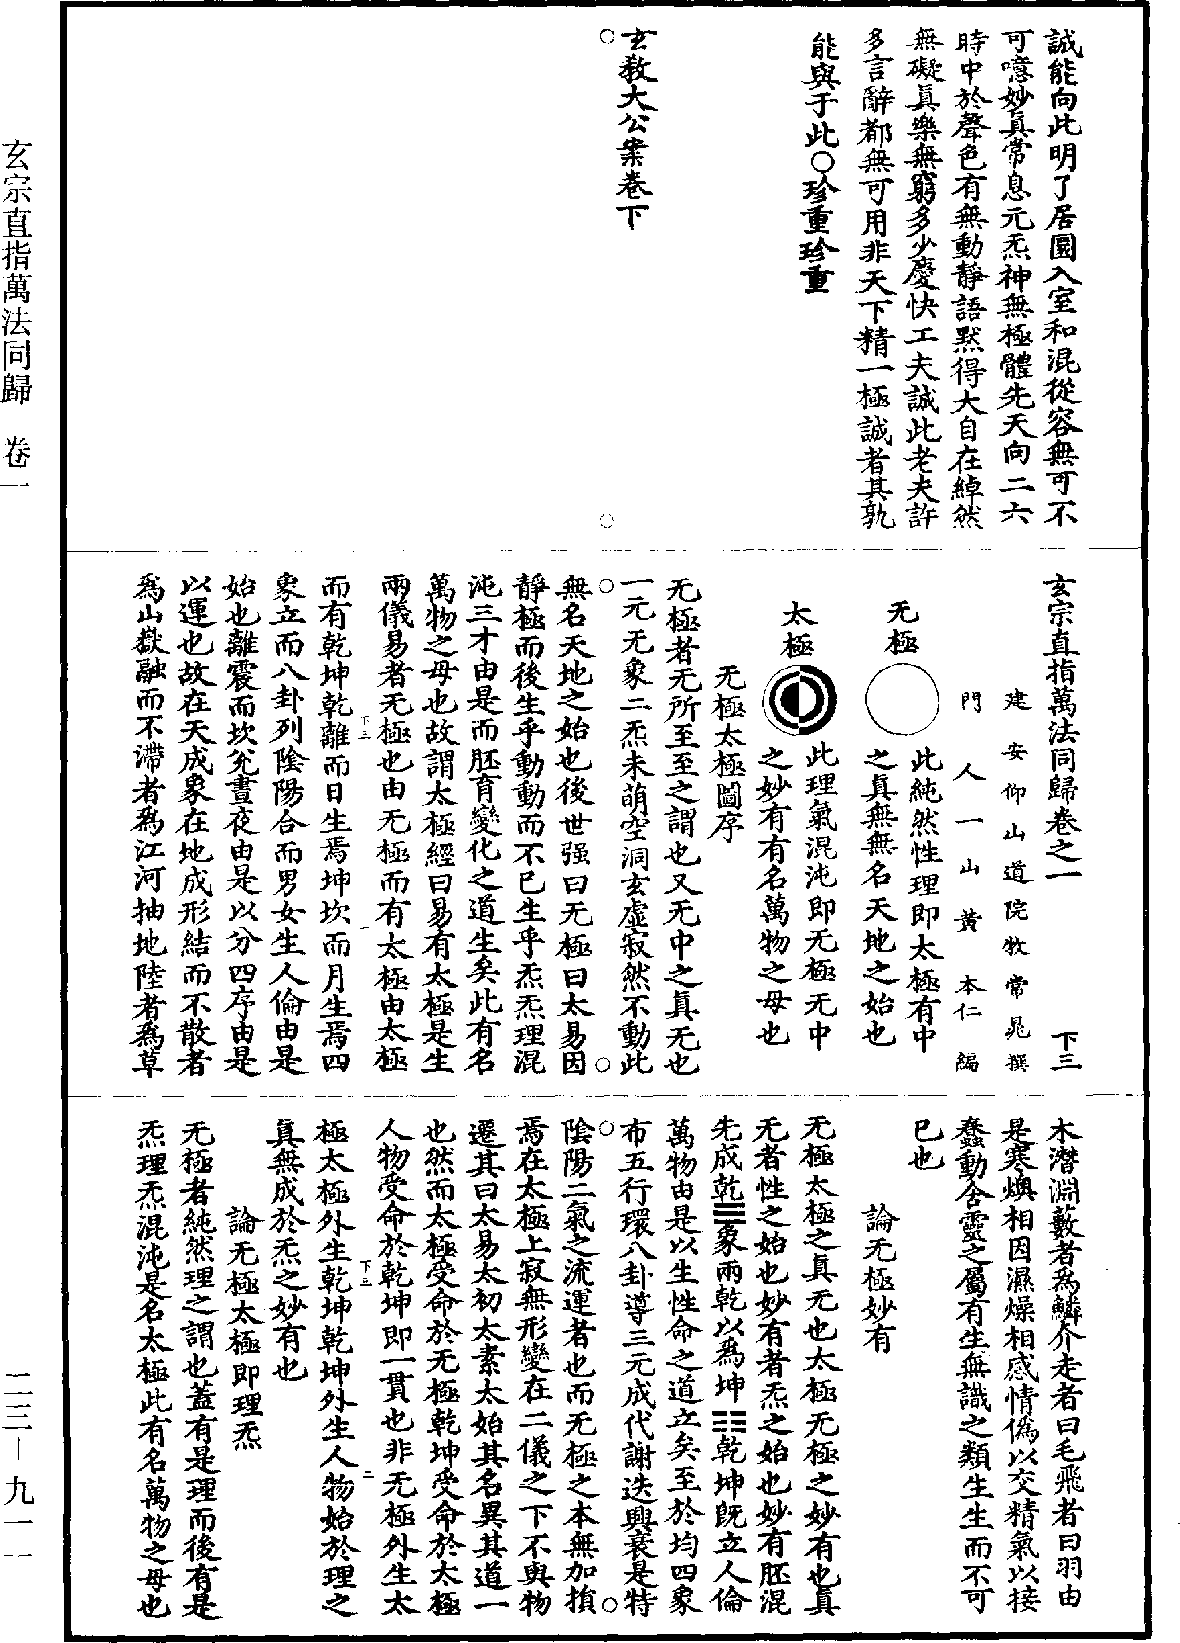 誠能向此明了居圜入室和混從容無可不
可噫妙真常息元炁神無極體先天向二六
時中於聲色有無動靜語默得大自在綽然
無礙真樂無窮多少慶快工夫誠此老夫許
多言辭都無可用非天下精一極誠者其孰
能與于此○珍重珍重
玄教大公案卷下
玄宗直指萬法同歸卷之一　下三
建安仰山道院牧常晁撰
門人一山黃本仁編
无極
此純然性理即太極有中
之真無無名天地之始也
太極
此理氣混沌即无極无中
之妙有有名萬物之母也
无極太極圖序
无極者无所至至之謂也又无中之真无也
一元无象二炁未萌空洞玄虛寂然不動此
無名天地之始也後世强曰无極曰太易因
靜極而後生乎動動而不已生乎炁炁理混
沌三才由是而胚育變化之道生矣此有名
萬物之母也故謂太極經曰易有太極是生
兩儀易者无極也由无極而有太極由太極
而有乾坤乾離而日生焉坤坎而月生焉四
象立而八卦列陰陽合而男女生人倫由是
始也離震而坎兊晝夜由是以分四序由是
以運也故在天成象在地成形結而不散者
爲山嶽融而不滯者爲江河抽地陸者爲草
木潛淵藪者爲鱗介走者曰毛飛者曰羽由
是寒燠相因濕燥相感情僞以交精氣以接
蠢動含靈之屬有生無識之類生生而不可
已也
論无極妙有
无極太極之真无也太極无極之妙有也真
无者性之始也妙有者炁之始也妙有胚混
先成乾☰象兩乾以爲坤☷乾坤旣立人倫
萬物由是以生性命之道立矣至於均四象
布五行環八卦導三元成代謝迭興衰是特
陰陽二氣之流運者也而无極之本無加損
焉在太極上寂無形變在二儀之下不與物
遷其曰太易太初太素太始其名異其道一
也然而太極受命於无極乾坤受命於太極
人物受命於乾坤即一貫也非无極外生太
極太極外生乾坤乾坤外生人物始於理之
真無成於炁之妙有也
論无極太極即理炁
无極者純然理之謂也蓋有是理而後有是
炁理炁混沌是名太極此有名萬物之母也
下三
一
下三
二
玄宗直指萬法同歸　卷一
二三－九一一